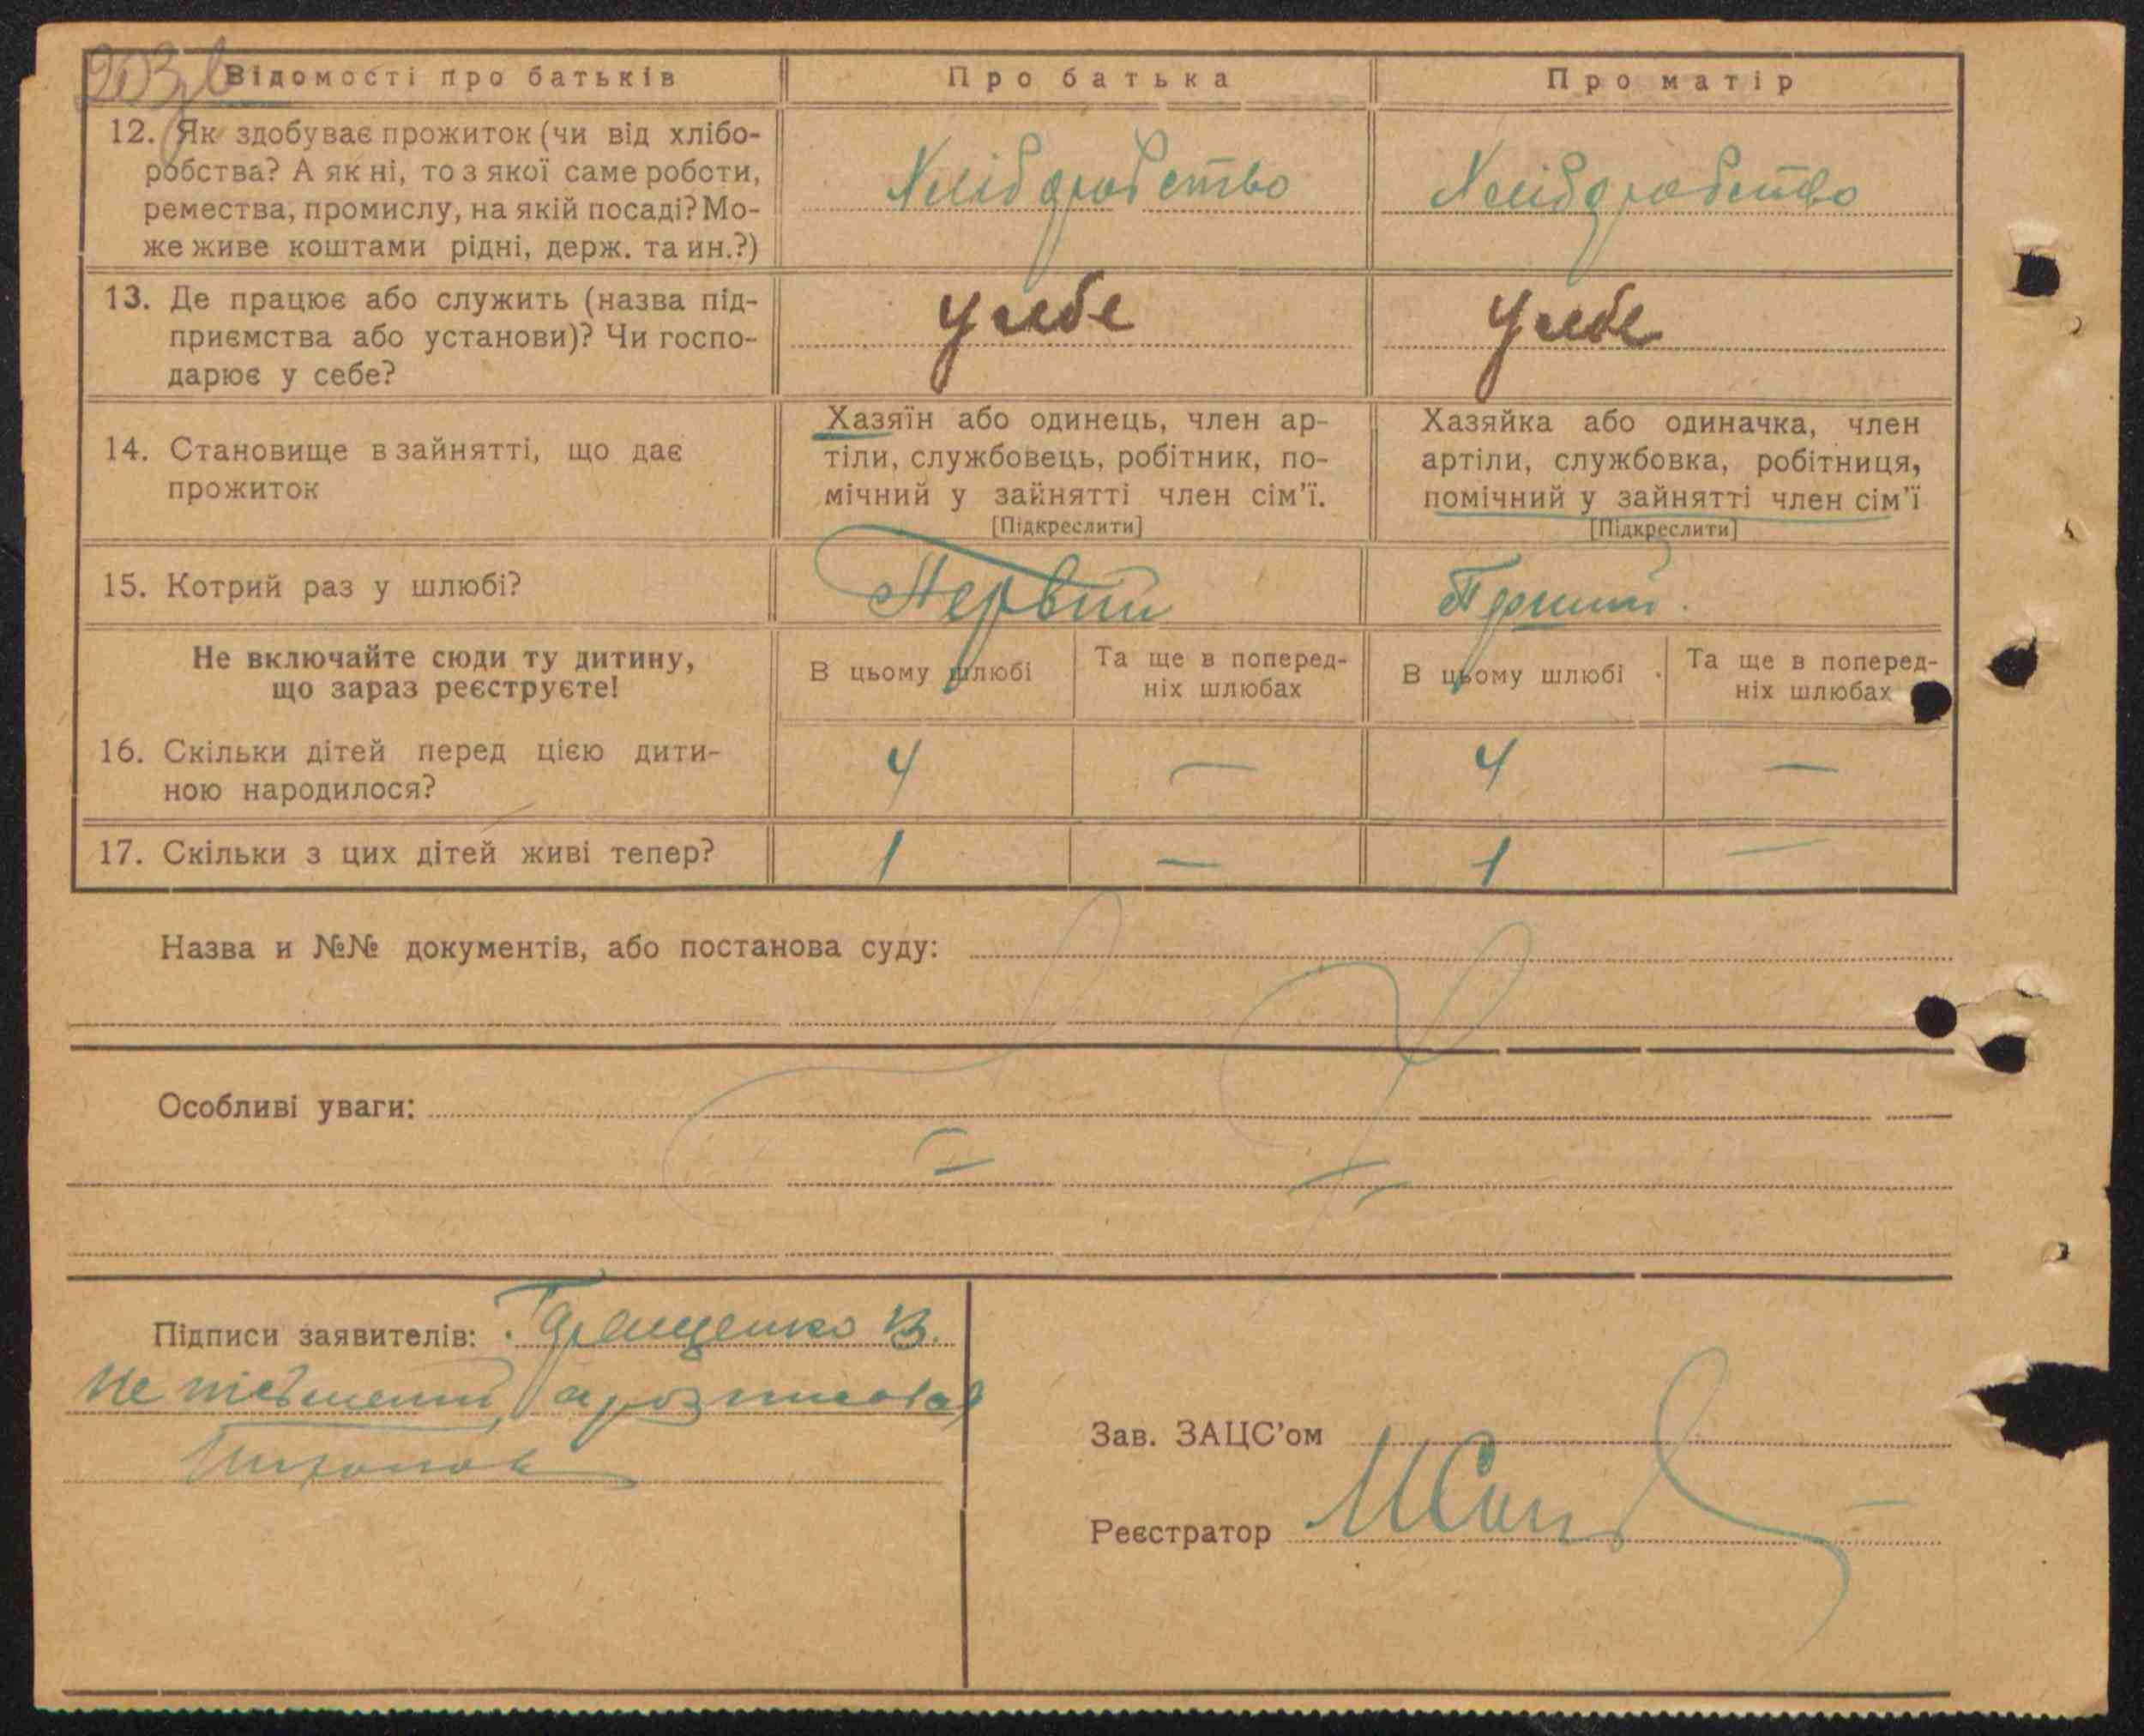 Відомості про батьків
Про батька
Про матір
12. Як здобуває прожиток (чи від хлібо-
робства? А як ні, то з якої саме роботи,
ремества, промислу, на якій посаді? Мо-
же живе коштами рідні, держ. та ин.?)
Хлібробство
Хлібробство
13. Де працює або служить (назва під-
приємства або установи)? Чи госпо-
дарює у себе?
У себе
У себе
14. Становище в зайнятті, що дає
прожиток
Хазяїн або одинець, член ар-
тіли, службовець, робітник, по-
мічний у зайнятті член сім'ї.
[Підкреслити]
Хазяйка або одиначка, член
артіли, службовка, робітниця,
помічний у зайнятті член сім'ї
[Підкреслити]
15. Котрий раз у шлюбі?
Первий
Не включайте сюди ту дитину,
що зараз реєструєте!
В цьому шлюбі
Та ще в поперед-
ніх шлюбах
В цьому шлюбі
Та ще в поперед-
ніх шлюбах
16. Скільки дітей перед цією дити-
ною народилося?
4
—
4
—
17. Скільки з цих дітей живі тепер?
1
—
1
—
Назва и №№ документів, або постанова суду:
Особливі уваги:
Підписи заявителів:
Зав. ЗАЦС'ом
Реєстратор